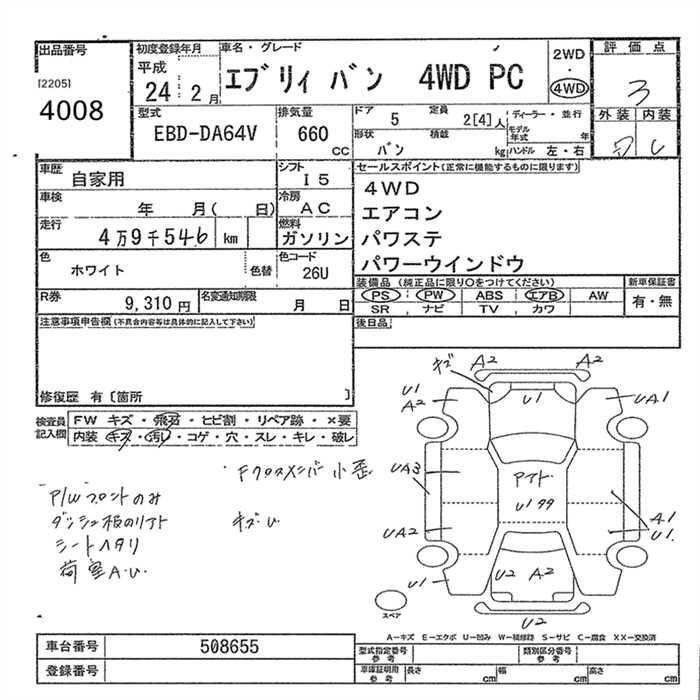 出品番号
[2205]
4008
初度登録年月
平成
24 : 2 月
車名・グレード
エブリィ バン 4WD PC
2WD
・
4WD
評価点
3
外装 内装
型式
EBD-DA64V
排気量
660
CC
ドア 5
定員 2[4] 人
ディーラー・並行
形状 バン
積載 kg
モデル年式 年
ハンドル 左・右
車歴 自家用
シフト I5
車検 年 月( 日)
冷房 AC
走行 4万9千546 km
燃料 ガソリン
色 ホワイト
色替
色コード 26U
R券 9,310円
名変通知期限 月 日
セールスポイント(正常に機能するものに限ります)
4WD
エアコン
パワステ
パワーウインドウ
装備品 (純正品に限り○をつけてください)
PS PW ABS エアB AW
SR ナビ TV カワ
新車保証書
有・無
後日品
注意事項申告欄(不具合内容等は具体的に記入して下さい)
修復歴 有〔箇所 〕
検査員記入欄
FW キズ・飛石・ヒビ割・リペア跡・×要
内装・キズ・汚レ・コゲ・穴・スレ・キレ・破レ
Fクロスメンバー小歪
キズU
P/Wフロントのみ
ダッシュ板のリアト
シートヘタリ
荷室A.U.
キズ A2 A2
U1
A2
U1
UA1
UA3
アオト
U1
UA2
A1
U1.
U1
U2 A2
U2
スペア
A-キズ E-エクボ U-凹み W-補修跡 S-サビ C-腐食 XX-交換済
車台番号 508655
登録番号
型式指定番号 参考
類別区分番号 参考
車庫証明用 参考
長さ cm
幅 cm
高さ cm